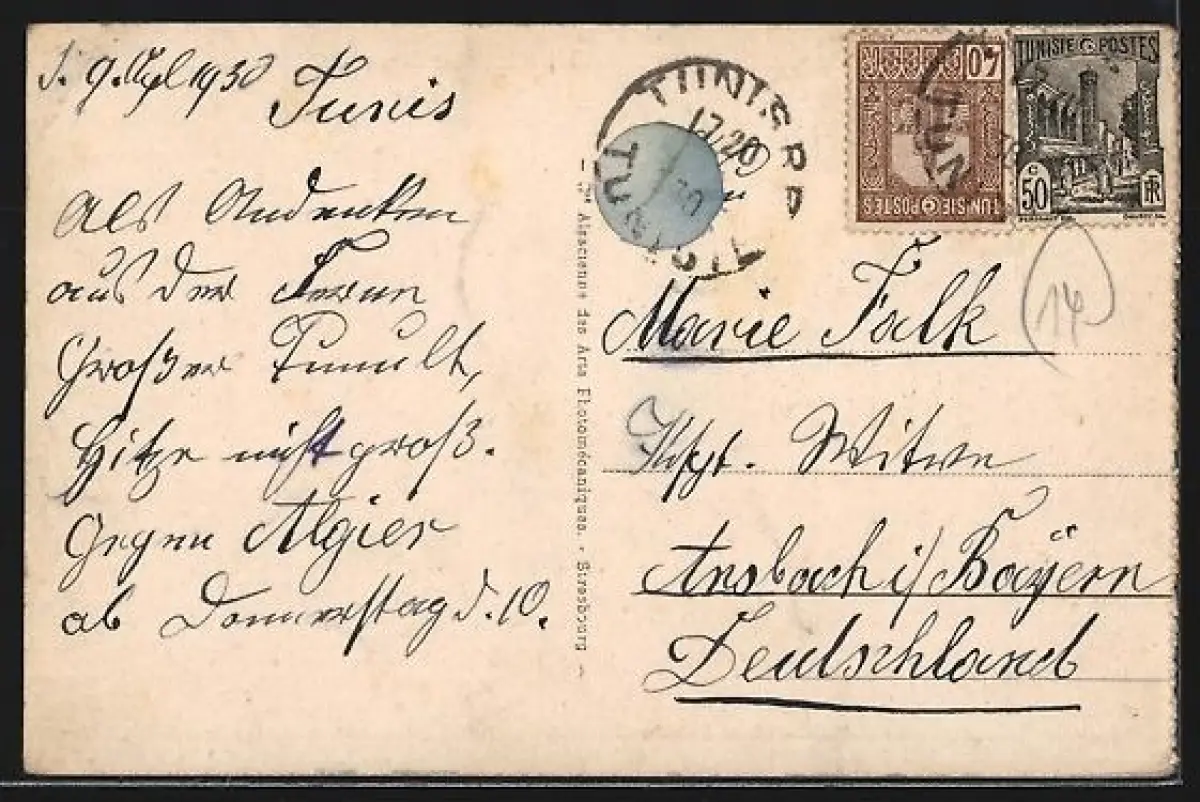 d. 9. Apl 1930
Tunis
Als Andenken
aus der Ferne
Großer Tumult,
Hitze nicht groß.
Gegen Algier
ab Donnerstag d. 10.
- Sté Alsacienne des Arts Photomécaniques. - Strasbourg -
TUNIS R.P.
17-20
TUNISIE
40
TUNISIE POSTES
TUNISIE POSTES
50
RF
14
Marie Falk
Witwe
Ansbach i/ Bayern
Deutschland